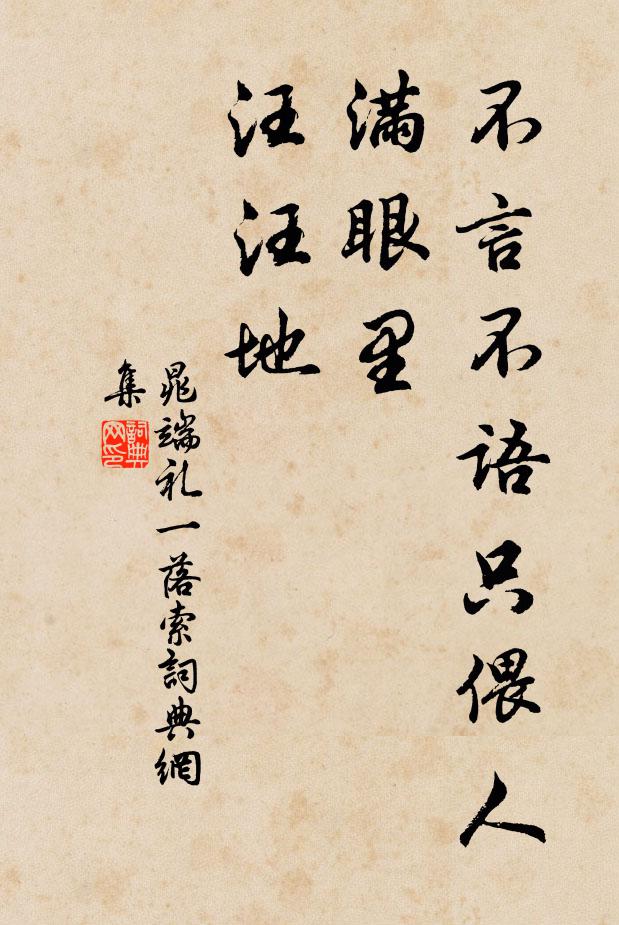 不言不語只偎人
滿眼里
汪汪地
晁端礼一落索詞典網
集
詞典
网印